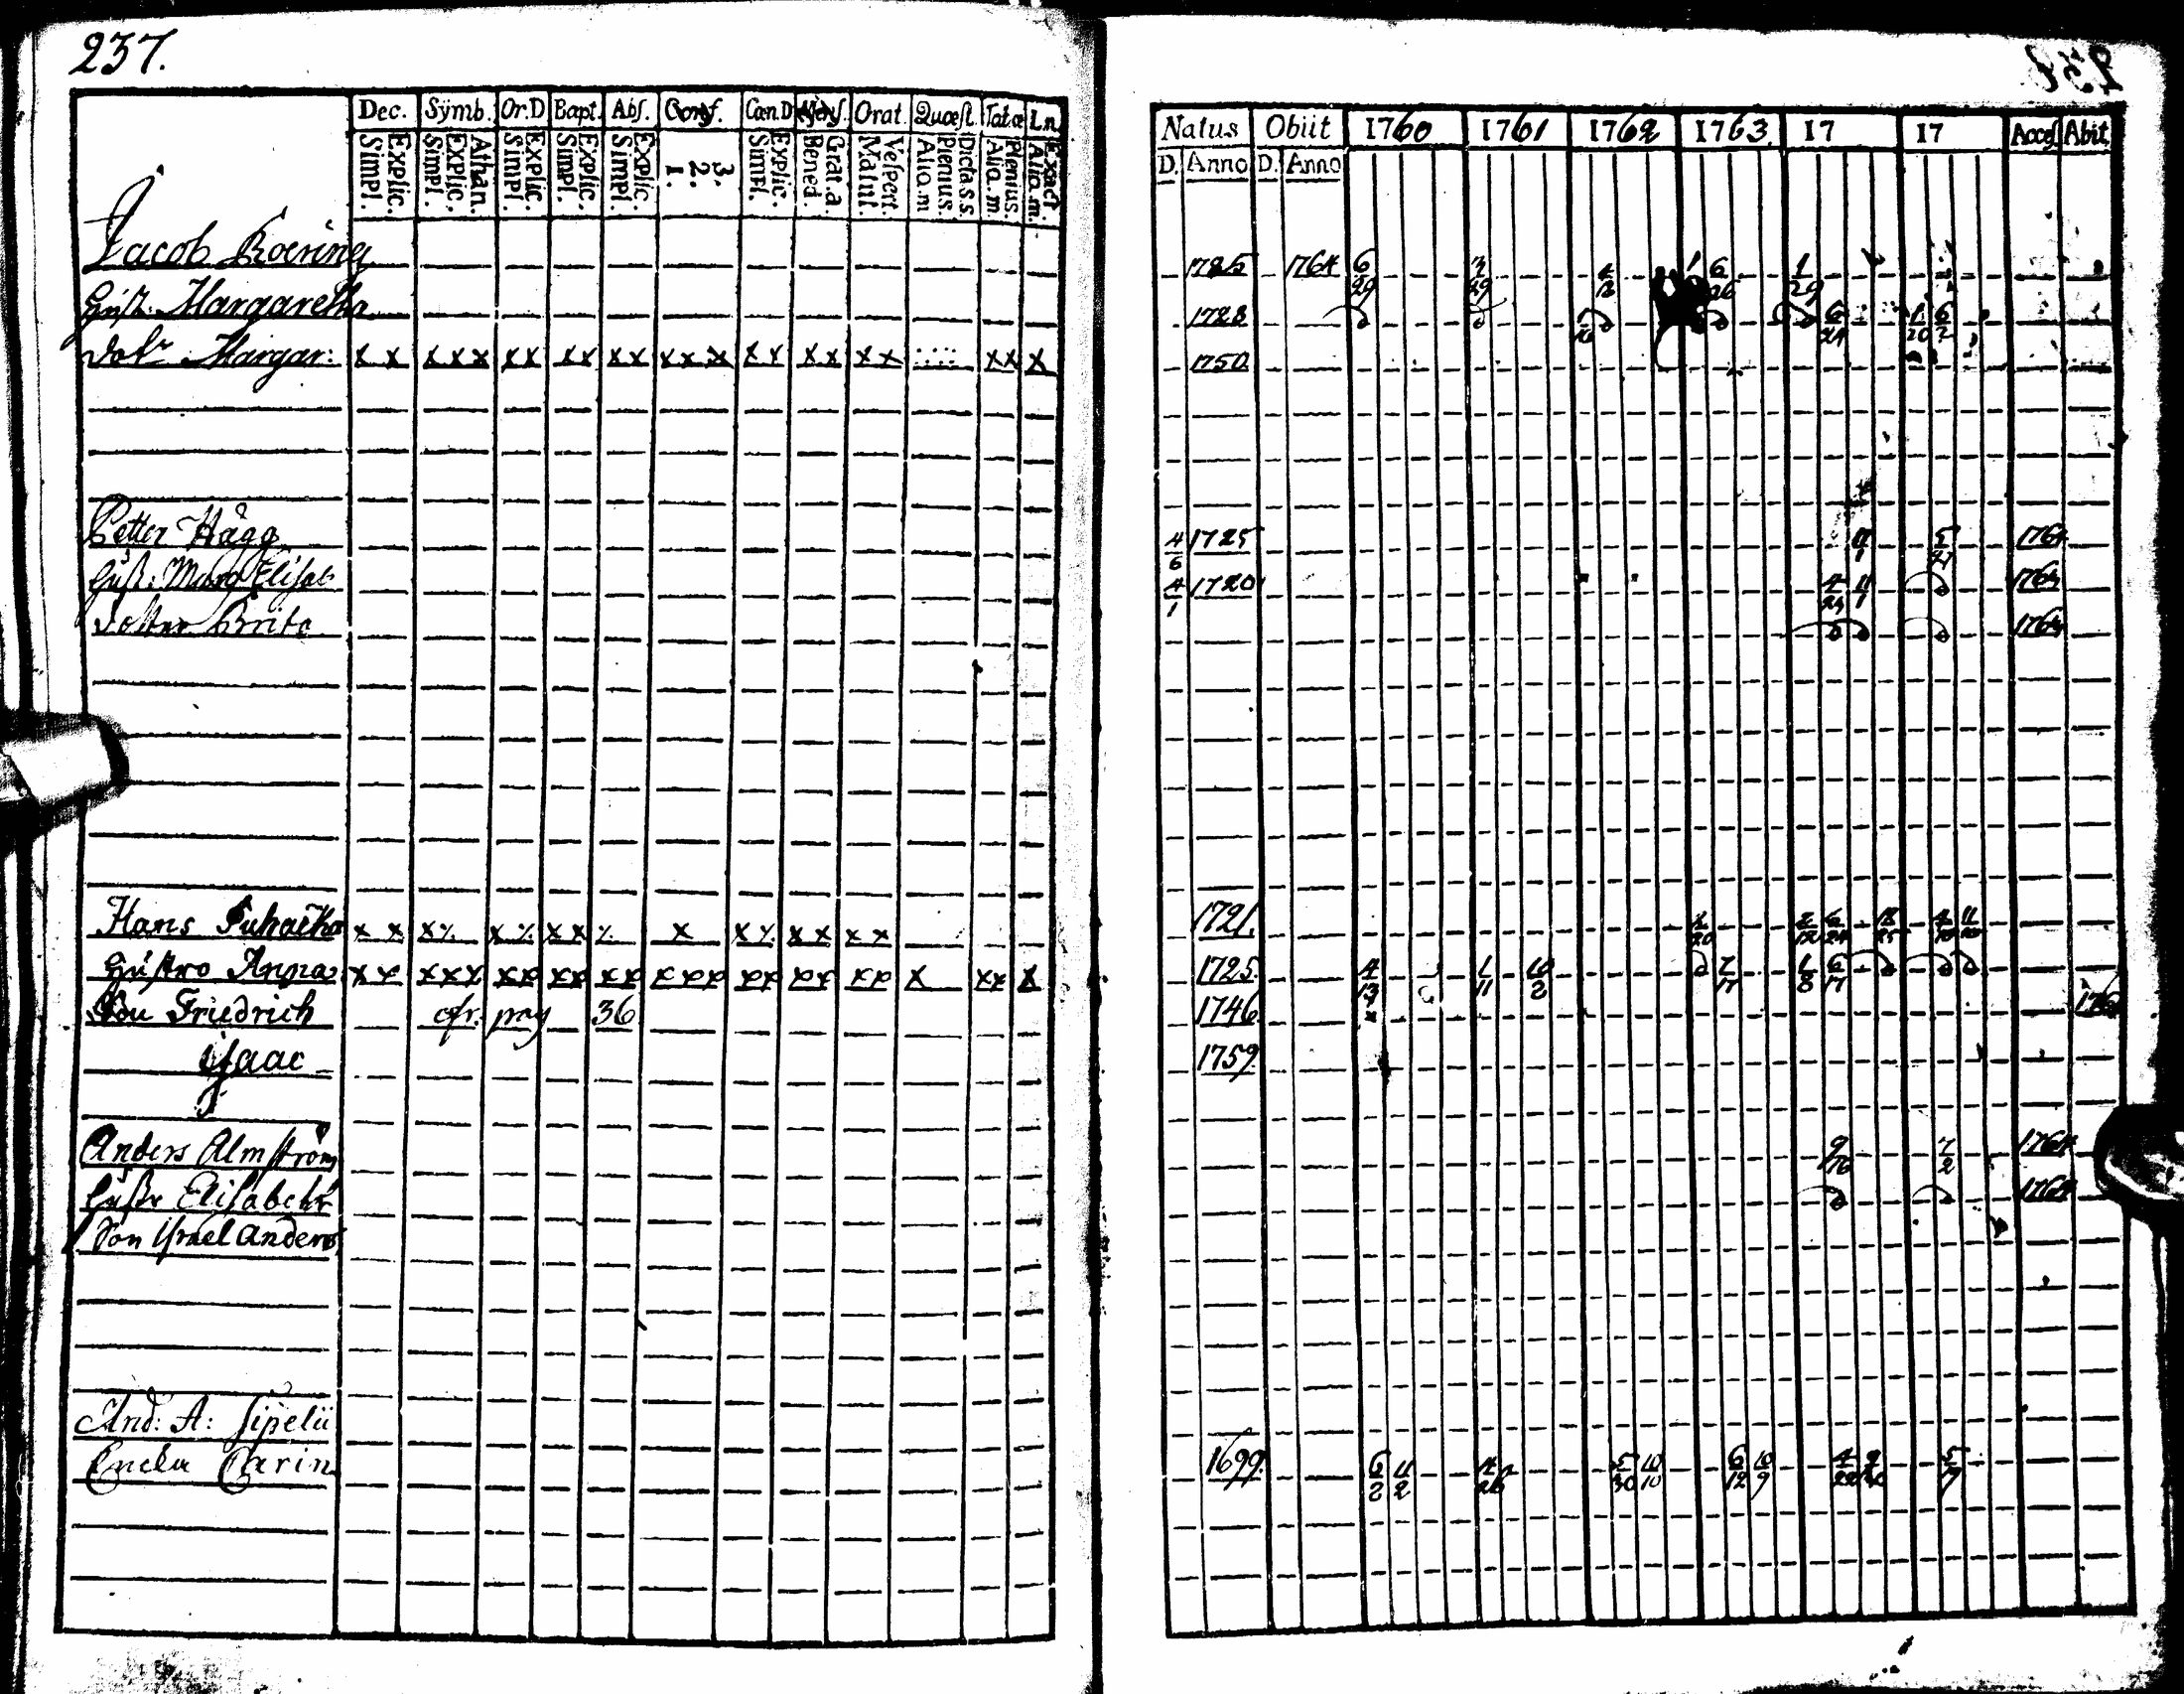 237.
Dec. Sÿmb. Or.D Bapt. Abs. Conf. Cœn.D Mens. Orat. Quæst. Tatæ L.n.
Simpl. Explic. Simpl. Explic. Athan. Simpl. Explic. Simpl. Explic. Simpl. Explic. 1. 2. 3. Simpl. Explic. Bened. Grat.a Matut. Vespert. Alia.m Plenius. Dicta.s.s. Alia.m. Plenius. Alia.m. Exact.
Jacob Roering
Hust. Margaretha
Dotr Margar: x x x x x x x x x x x x x x x x x x x x x x x x
Petter Hägg
Hust: Marg Elisab
Dotter Brita
Hans x x x x x x x x x x x x
Hustro Anna x x x x x x x x x x x x x x x x x x x x x x x x
Son Friedrich cfr. pag 36
Isaac
Anders Almström
Hustr Elisabeth
Son Israel Anders
And: A: Sipelii
Encka Carin
258
Natus Obiit 1760 1761 1762 1763. 17 17 Acces Abit.
D. Anno D. Anno
1725 1764 6/29 3/29 1 6/26 1/29
1728 6/24 1/20 6/2
1750
4/6 1725 5 1764
4/1 1720 4/24 11/1 1764
1764
1721. 2/20 2/12 6/24 12/25 11/10
1725. 4/13 1/11 10/2 7/17 1/8 6/17
1746 176
1759.
9/16 7/2 1764
1764
1699. 6/2 11/2 4/26 5/30 10/10 6/12 10/9 4/22 9 5/19